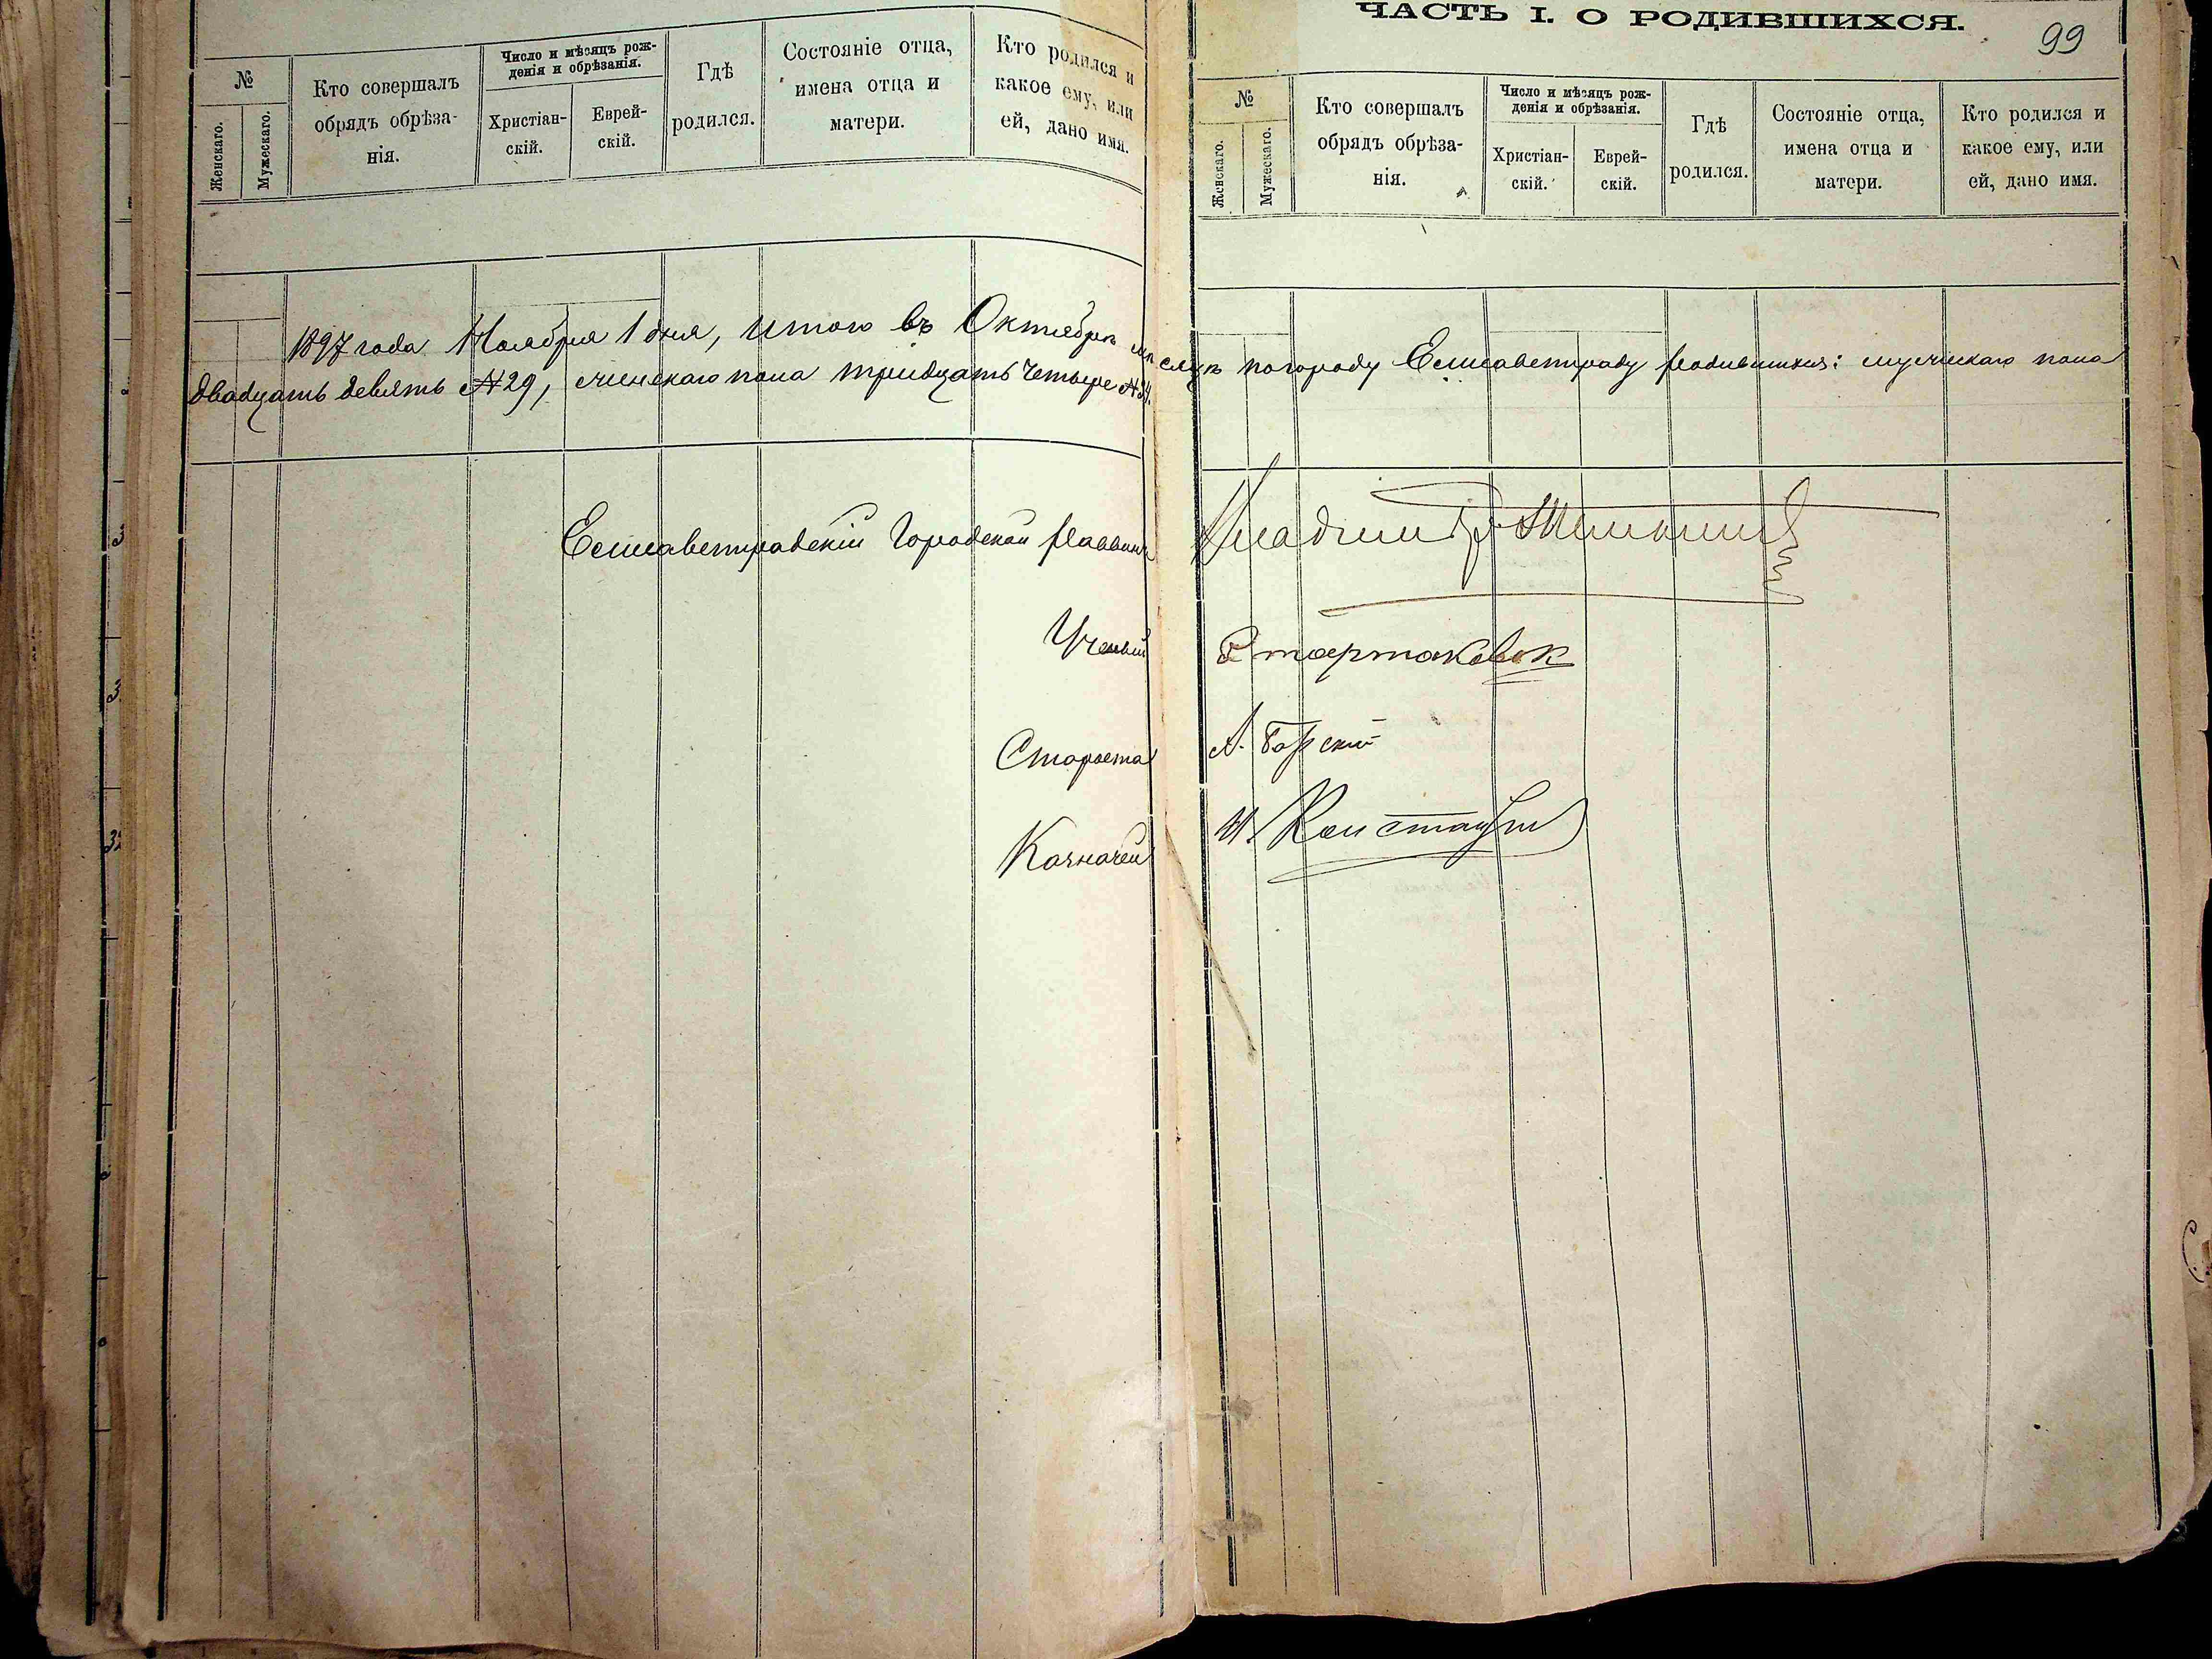 №
Женскаго.
Мужескаго.
Кто совершалъ
обрядъ обрѣза-
нія.
Число и мѣсяцъ рож-
денія и обрѣзанія.
Христіан-
скій.
Еврей-
скій.
Гдѣ
родился.
Состояніе отца,
имена отца и
матери.
Кто родился и
какое ему, или
ей, дано имя.
ЧАСТЬ I. О РОДИВШИХСЯ.
99
№
Женскаго.
Мужескаго.
Кто совершалъ
обрядъ обрѣза-
нія.
Число и мѣсяцъ рож-
денія и обрѣзанія.
Христіан-
скій.
Еврей-
скій.
Гдѣ
родился.
Состояніе отца,
имена отца и
матери.
Кто родился и
какое ему, или
ей, дано имя.
1897 года Ноября 1 дня, итого въ Октябрѣ мѣсяцѣ по городу Елисаветграду родившихся: мужскаго пола
двадцать девять №29, женскаго пола тридцать четыре №34.
Елисаветградскій Городской Раввинъ Владимиръ
Ученый
Староста
Казначей